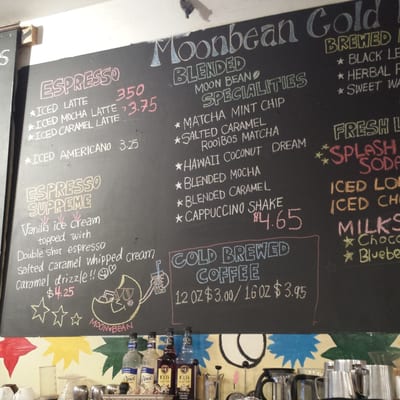 Moonbean Cold
ESPRESSO
ICED LATTE 3.50
ICED MOCHA LATTE
ICED CARAMEL LATTE 3.75
ICED AMERICANO 3.25
ESPRESSO
SUPREME
Vanilla ice cream
topped with
Double shot espresso
Salted Caramel whipped cream
Caramel drizzle!!
$4.25
MOONBEAN
BLENDED
MOON BEAN
SPECIALITIES
MATCHA MINT CHIP
SALTED CARAMEL
ROOIBOS MATCHA
HAWAII COCONUT DREAM
BLENDED MOCHA
BLENDED CARAMEL
CAPPUCCINO SHAKE
$4.65
COLD BREWED
COFFEE
12 OZ $3.00/ 16 OZ $3.95
BREWED
BLACK
HERBAL
SWEET
FRESH
SPLASH
SODA
ICED
ICED
MILKS
Choc
Blueber